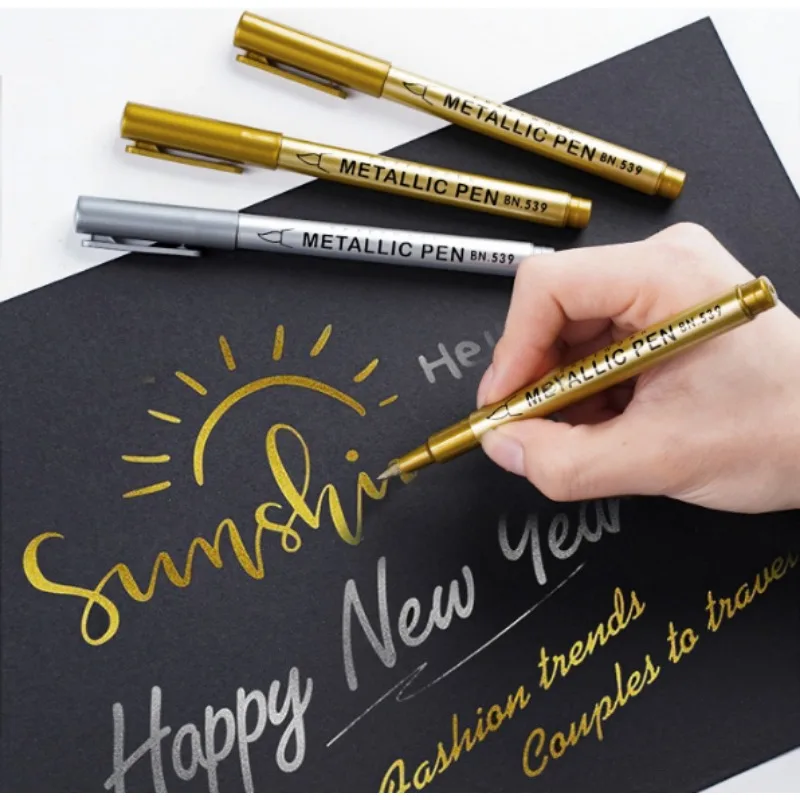 METALLIC PEN BN.539
METALLIC PEN BN.539
METALLIC PEN BN.539
METALLIC PEN BN 539
Sunshi
Happy New Year
Fashion trends
Couples to travel